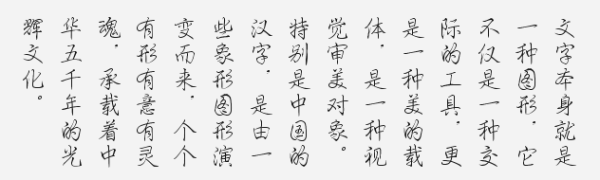 文字本身就是
一种图形，它
不仅是一种交
际的工具，更
是一种美的载
体，是一种视
觉审美对象。
特别是中国的
汉字，是由一
些象形图形演
变而来，个个
有形有意有灵
魂，承载着中
华五千年的光
辉文化。